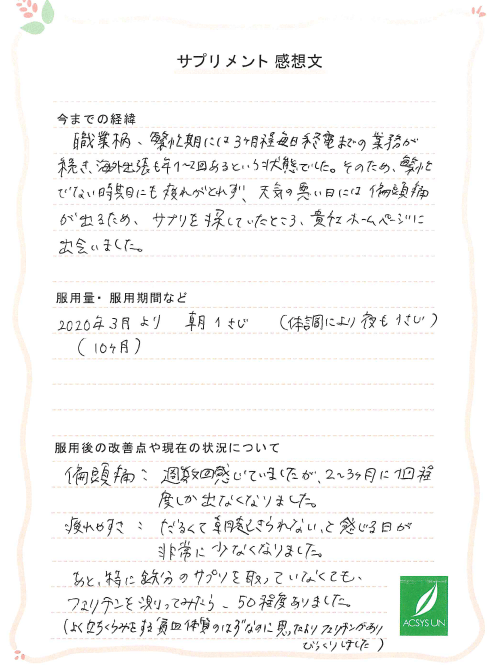 サプリメント 感想文
今までの経緯
職業柄、繁忙期には3ヶ月程毎日終電までの業務が
続き、海外出張も年1~2回あるという状態でした。そのため、繁忙
でない時期にも疲れがとれず、天気の悪い日には偏頭痛
が出るため、サプリを探していたところ、貴社ホームページに
出会いました。
服用量・服用期間など
2020年3月より 朝1さじ (体調により夜も1さじ)
(10ヶ月)
服用後の改善点や現在の状況について
偏頭痛: 週数回感じていましたが、2~3ヶ月に1回程
度しか出なくなりました。
疲れやすさ: だるくて朝起きられない、と感じる日が
非常に少なくなりました。
あと、特に鉄分のサプリを取っていなくても、
フェリチンを測ってみたら、50程度ありました。
(よく立ちくらみをする貧血体質のはずなのに思ったよりフェリチンがあり
びっくりしました)
ACSYS UN